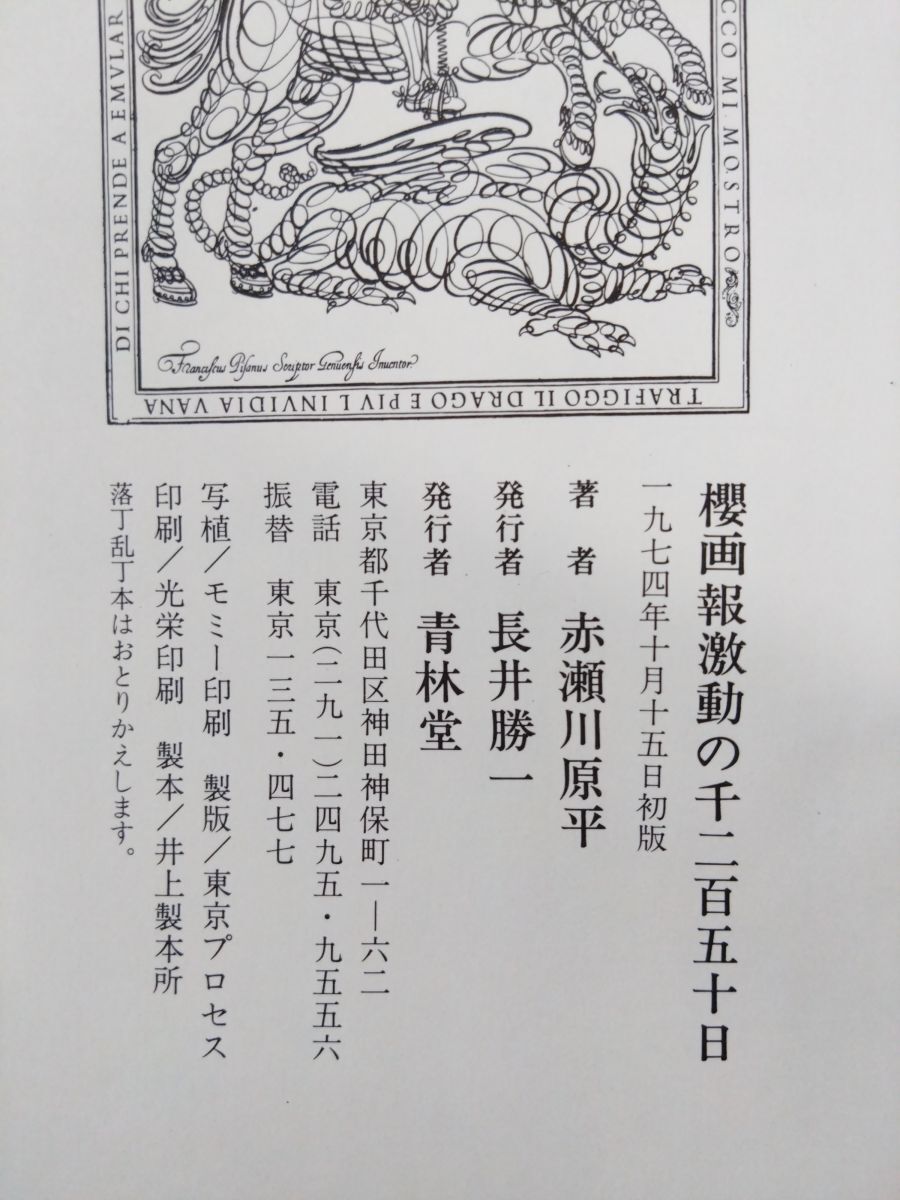 DI CHI PRENDE A EMVLAR
CCO MI MOSTRO
Franciscus Pisanus Scriptor Genuensis Inuentor
TRAFIGGO IL DRAGO E PIV L INVIDIA VANA
櫻画報激動の千二百五十日
一九七四年十月十五日初版
著者 赤瀬川原平
発行者 長井勝一
発行者 青林堂
東京都千代田区神田神保町一―六二
電話 東京(二九一)二四九五・九五五六
振替 東京一三五・四七七
写植/モミー印刷 製版/東京プロセス
印刷/光栄印刷 製本/井上製本所
落丁乱丁本はおとりかえします。